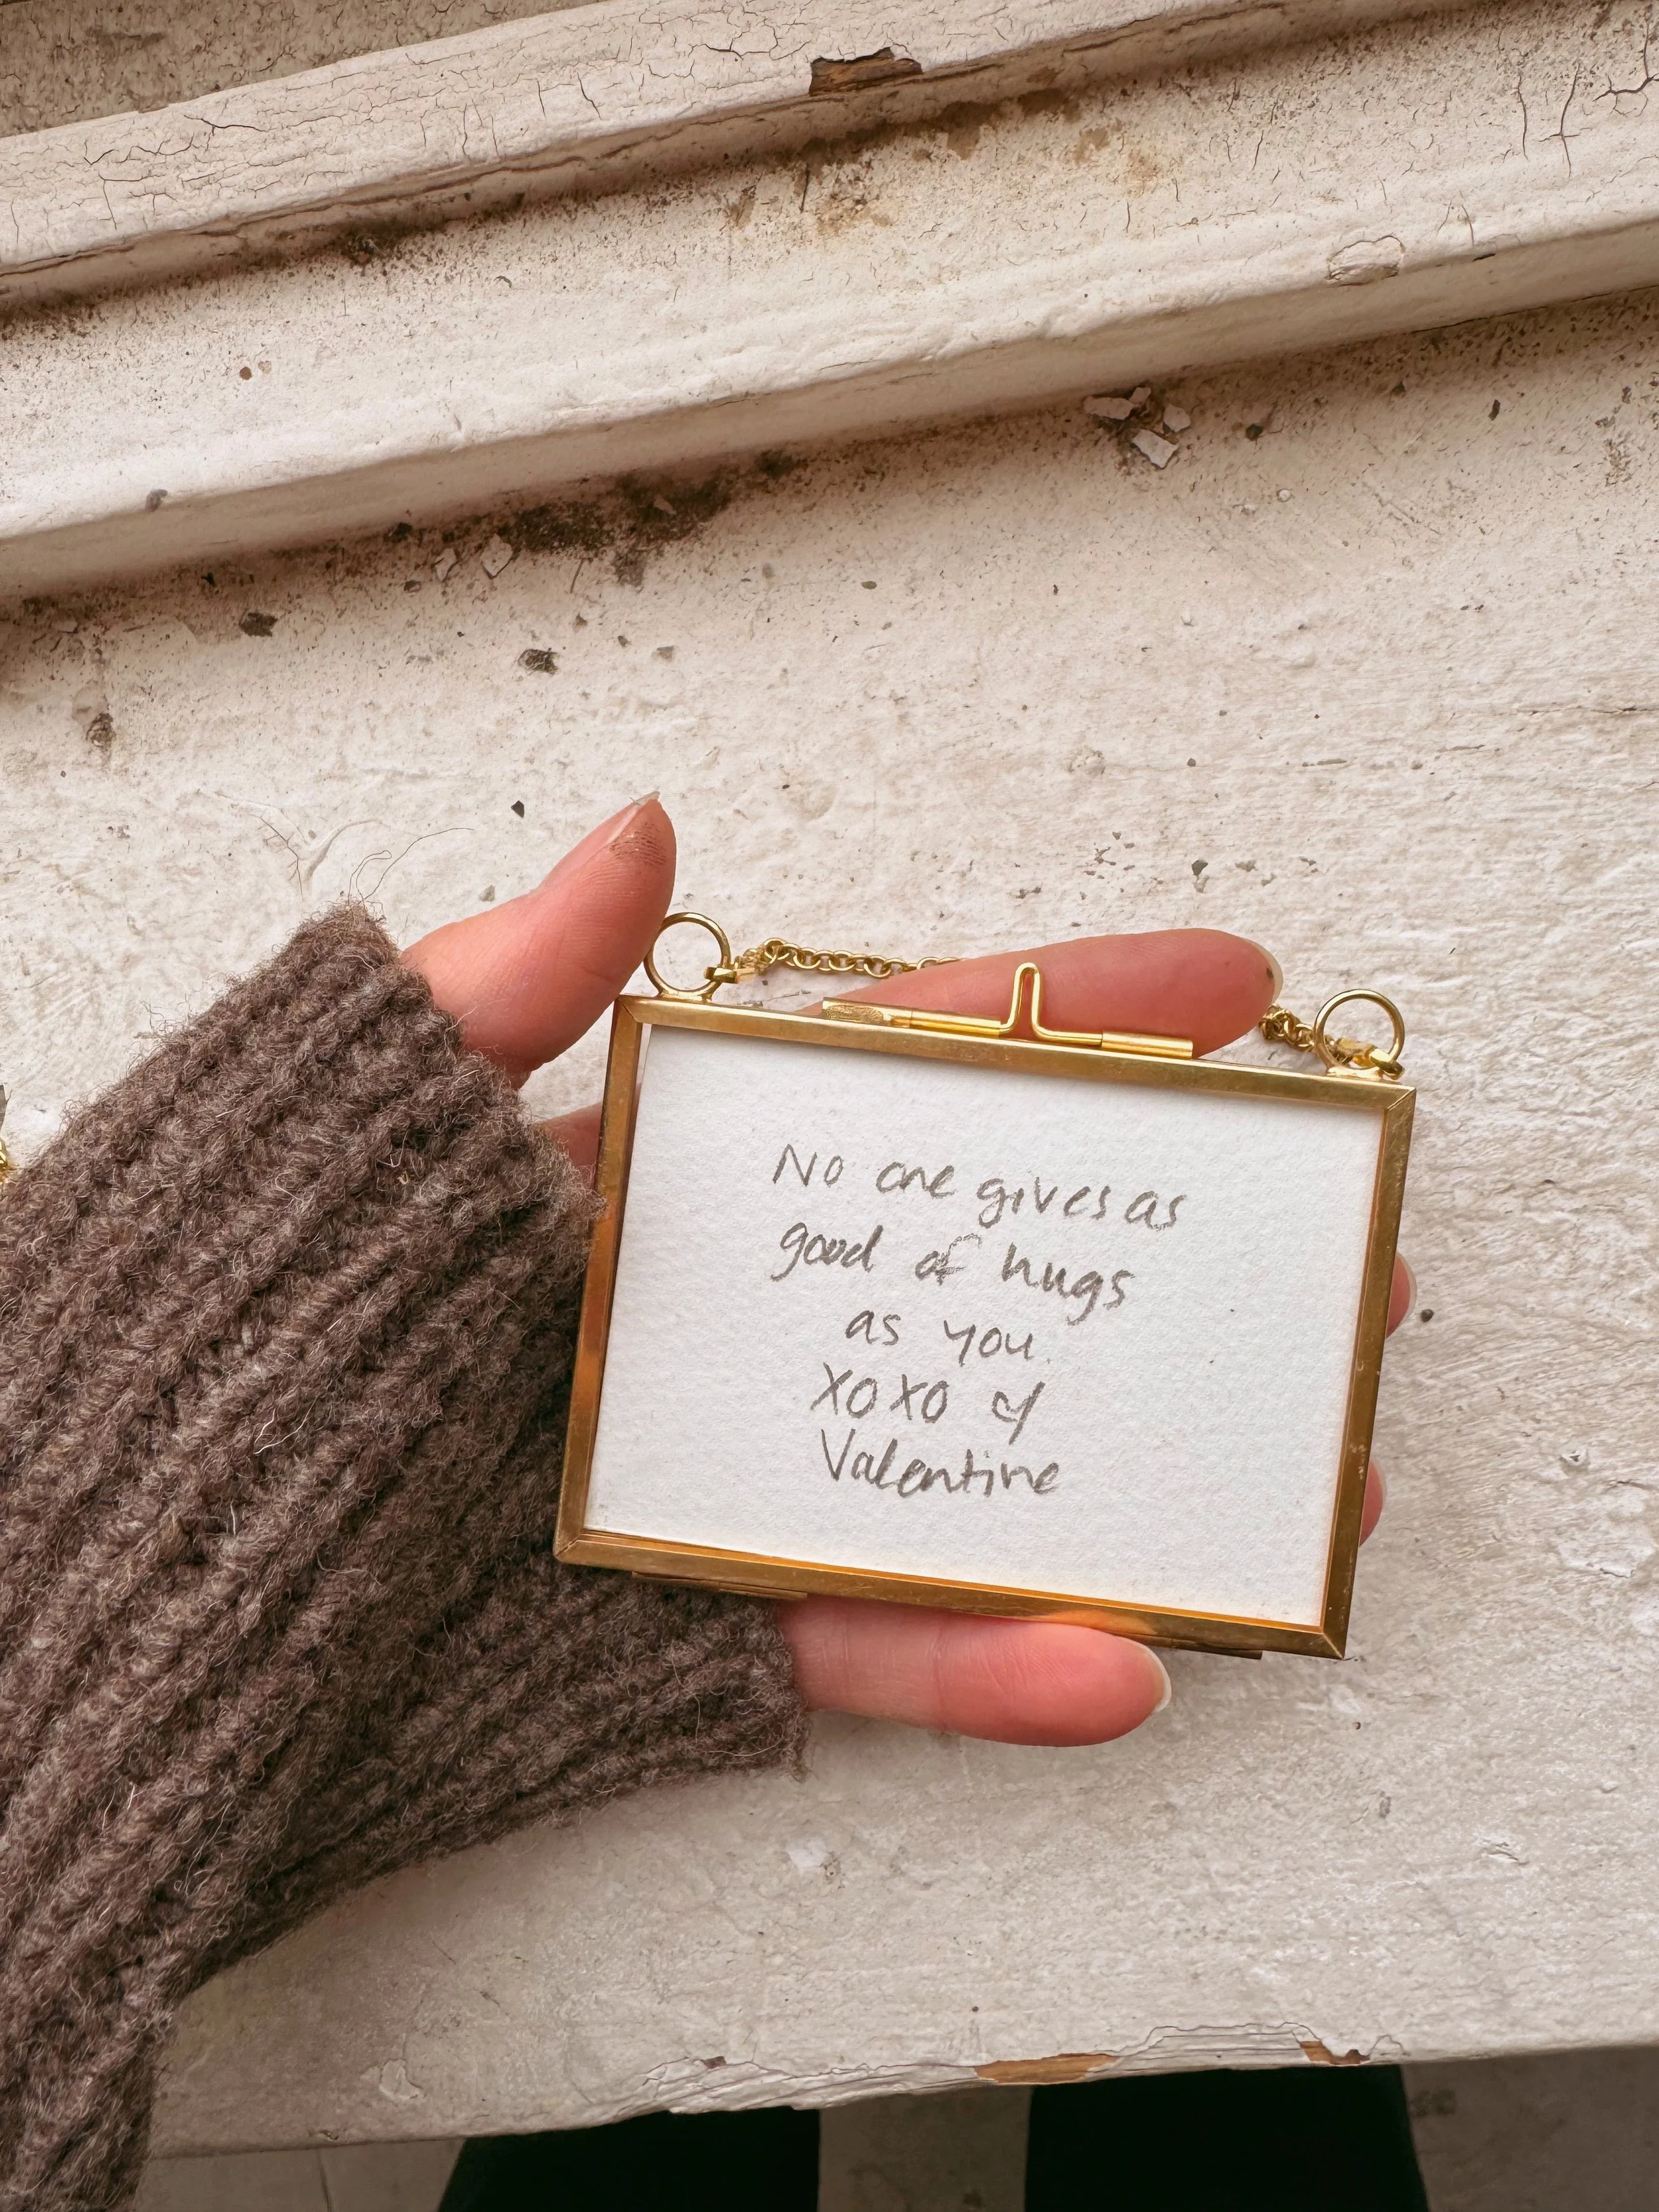 No one gives as
good of hugs
as you.
XOXO
Valentine